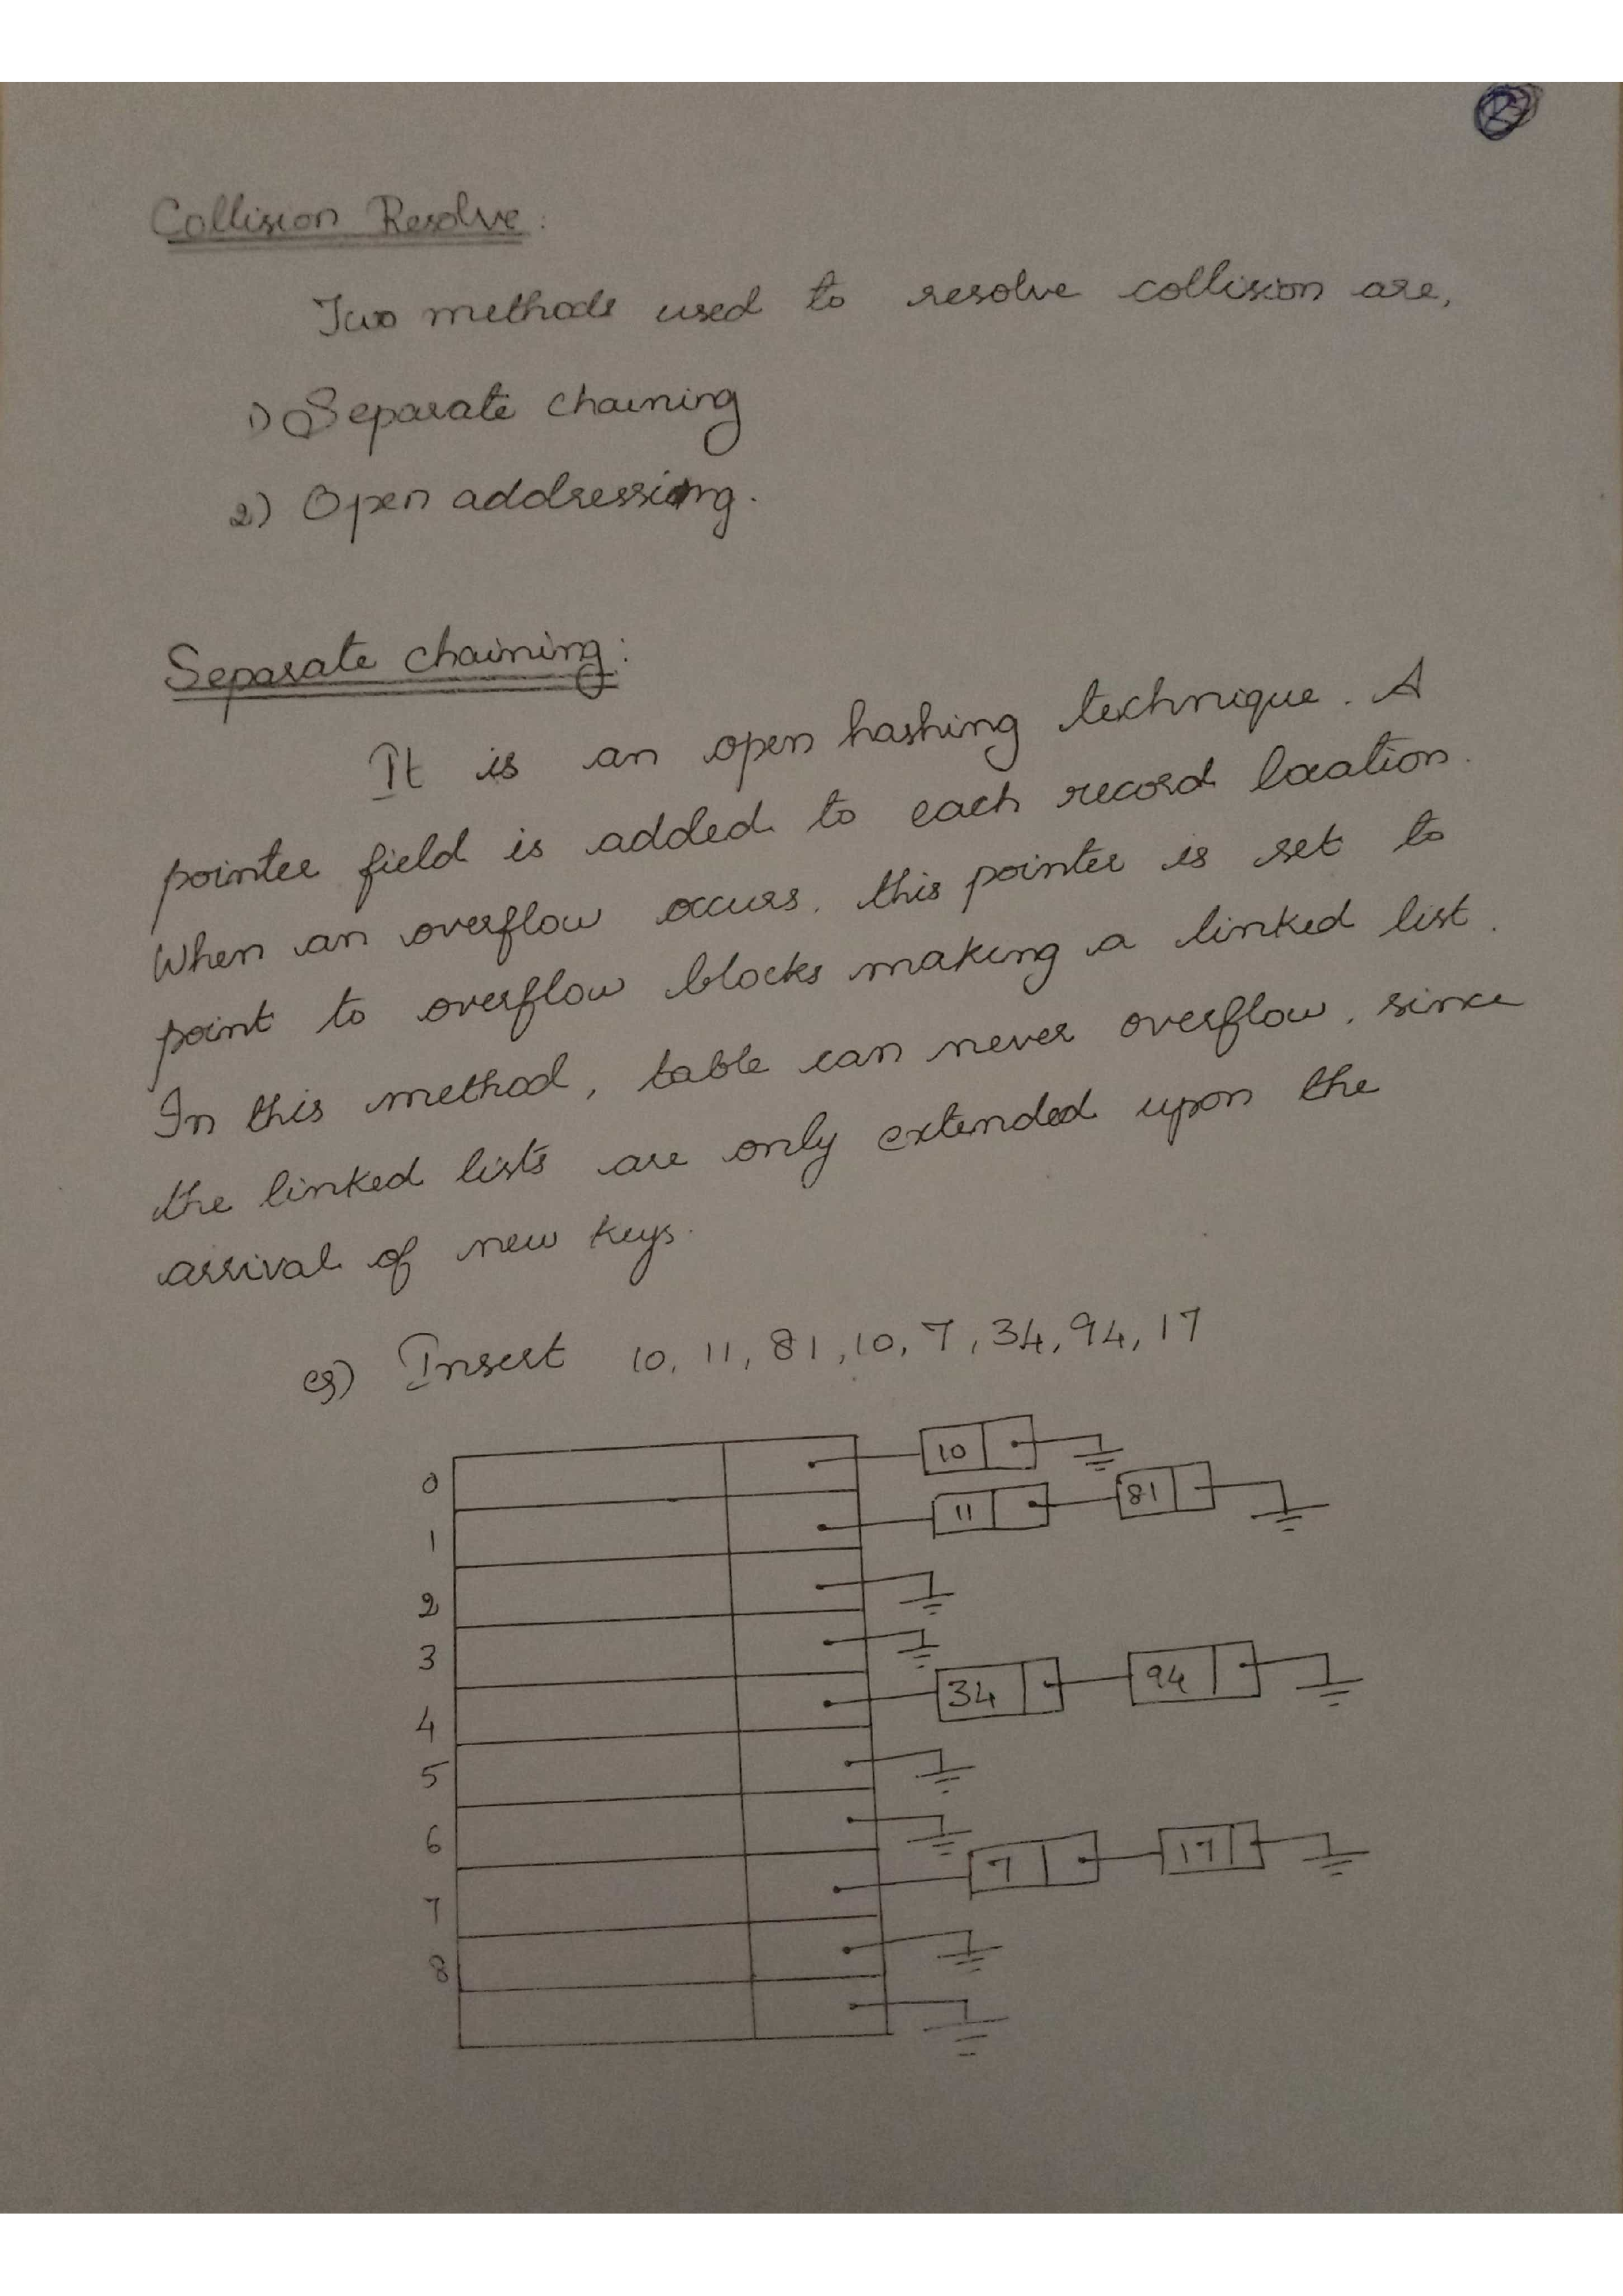 Collision Resolve:
Two methods used to resolve collision are,
1) Separate chaining
2) Open addressing.
Separate chaining:
It is an open hashing technique. A
pointer field is added to each record location.
When an overflow occurs, this pointer is set to
point to overflow blocks making a linked list.
In this method, table can never overflow, since
the linked lists are only extended upon the
arrival of new keys.
eg) Insert 10, 11, 81, 10, 7, 34, 94, 17
0 10
1 11 81
2
3
4 34 94
5
6
7 7 17
8